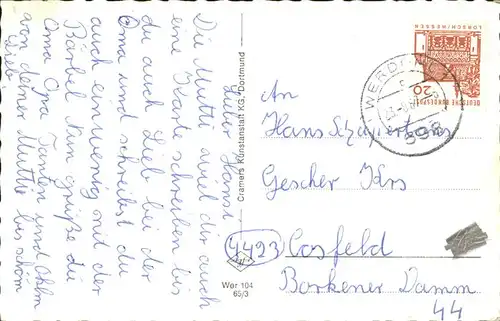 Lieber Hans
Die Mutti will dir auch
eine Karte schreiben bis
du auch Lieb bei der
Oma und schreibst du
auch ein wenig mit der
Bärbel Nun grüße die
Oma Opa Tanten und
von deiner Mutti bis
Cramers Kunstanstalt KG, Dortmund
Wer 104
65/3
An
Hans
Gescher Krs
4423 Cosfeld
Borkener Damm
44
WERDOHL
598
20
DEUTSCHE BUNDESPOST
LORSCH/HESSEN